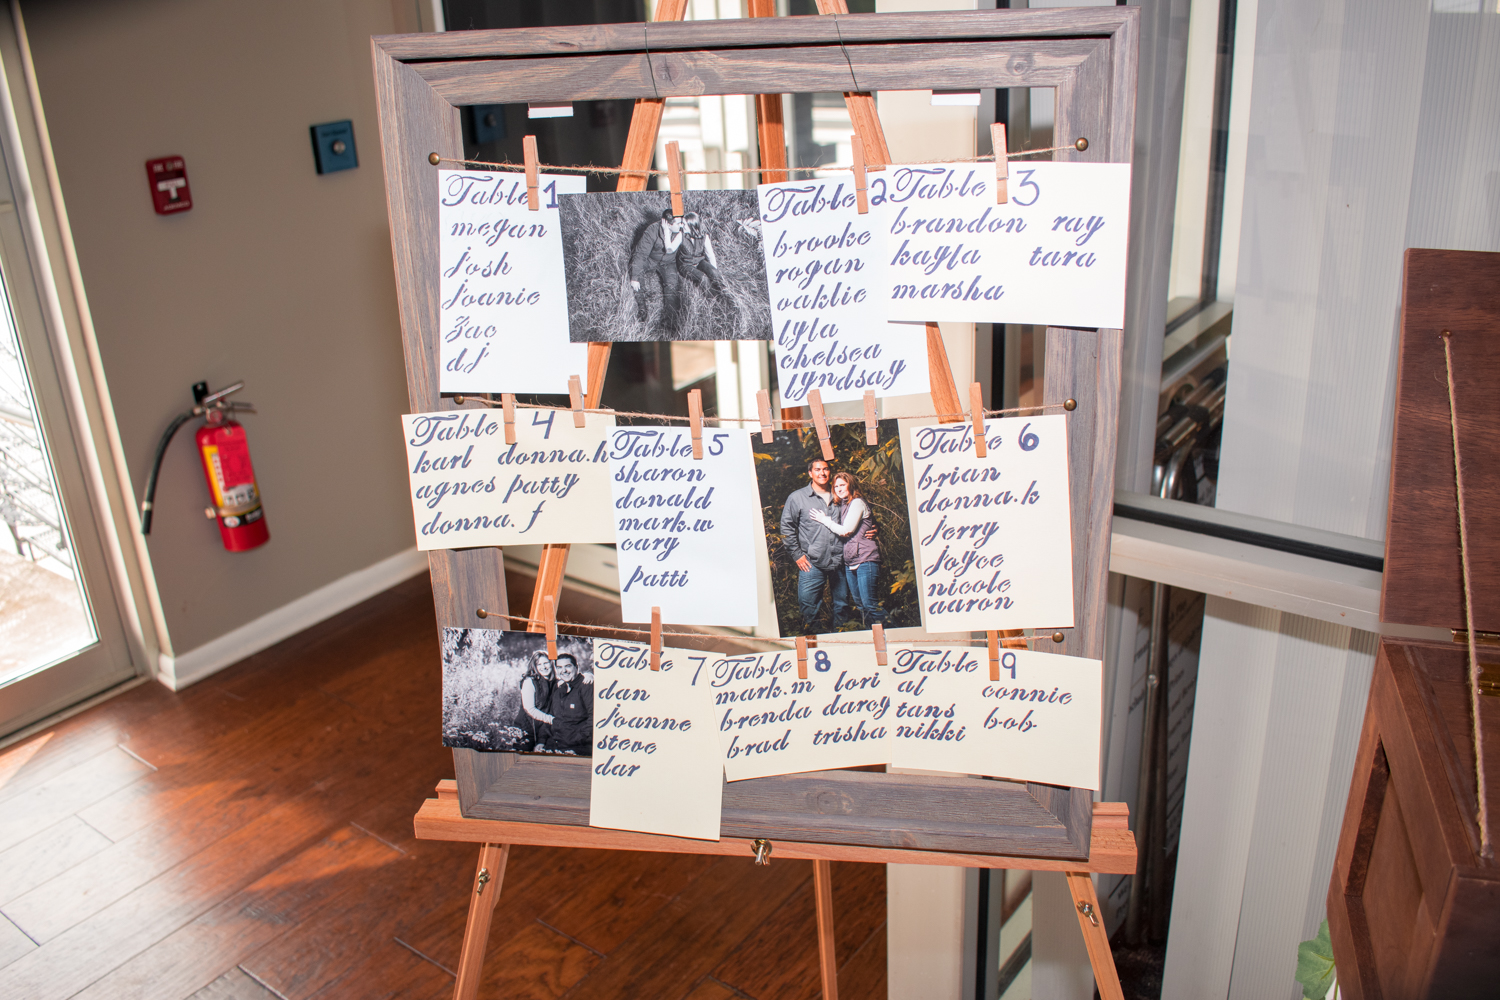 Table 1
megan
josh
joanie
zac
dj
Table 2
brooke
rogan
oaklie
lyla
chelsea
lyndsay
Table 3
brandon ray
kayla tara
marsha
Table 4
karl donna.h
agnes patty
donna. f
Table 5
sharon
donald
mark.w
cary
patti
Table 6
brian
donna.k
jerry
joyce
nicole
aaron
Table 7
dan
joanne
steve
dar
Table 8
mark.m lori
brenda darcy
brad trisha
Table 9
al connie
tans bob
nikki